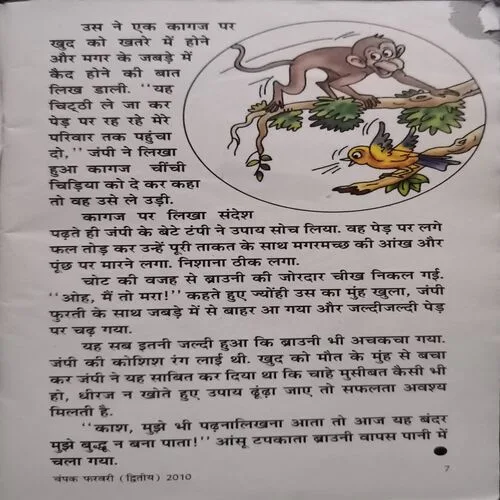 उस ने एक कागज पर
खुद को खतरे में होने
और मगर के जबड़े में
कैद होने की बात
लिख डाली. ''यह
चिट्ठी ले जा कर
पेड़ पर रह रहे मेरे
परिवार तक पहुंचा
दो,'' जंपी ने लिखा
हुआ कागज चींची
चिड़िया को दे कर कहा
तो वह उसे ले उड़ी.
कागज पर लिखा संदेश
पढ़ते ही जंपी के बेटे टंपी ने उपाय सोच लिया. वह पेड़ पर लगे
फल तोड़ कर उन्हें पूरी ताकत के साथ मगरमच्छ की आंख और
पूंछ पर मारने लगा. निशाना ठीक लगा.
चोट की वजह से ब्राउनी की जोरदार चीख निकल गई.
''ओह, मैं तो मरा!'' कहते हुए ज्योंही उस का मुंह खुला, जंपी
फुरती के साथ जबड़े में से बाहर आ गया और जल्दीजल्दी पेड़
पर चढ़ गया.
यह सब इतनी जल्दी हुआ कि ब्राउनी भी अचकचा गया.
जंपी की कोशिश रंग लाई थी. खुद को मौत के मुंह से बचा
कर जंपी ने यह साबित कर दिया था कि चाहे मुसीबत कैसी भी
हो, धीरज न खोते हुए उपाय ढूंढ़ा जाए तो सफलता अवश्य
मिलती है.
''काश, मुझे भी पढ़नालिखना आता तो आज यह बंदर
मुझे बुद्धू न बना पाता!'' आंसू टपकाता ब्राउनी वापस पानी में
चला गया.
चंपक फरवरी (द्वितीय) 2010
7